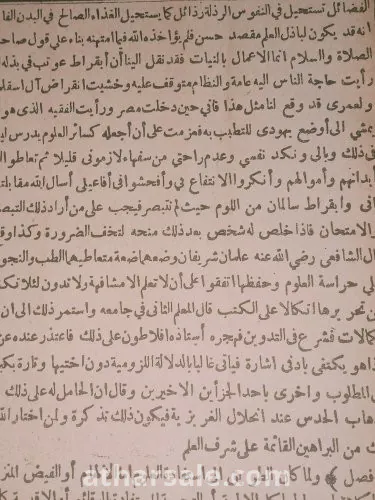 الفضائل تستحيل فى النفوس الرذلة رذائل كما يستحيل الغذاء الصالح فى البدن الفا
انه قد يكون لباذل العلم مقصد حسن فلم يؤاخذه الله فيما امتهنه بناء على قول صاحب
الصلاة والسلام انما الاعمال بالنيات فقد نقل الينا أن أبقراط عوتب فى بذله
رأيت حاجة الناس اليه عامة والنظام متوقف عليه وخشيت انقراض آل اسقل
ولعمرى قد وقع لنا مثل هذا فانى حين دخلت مصر ورأيت الفقيه الذى هو
يمشى الى أوضع يهودى للتطبب به فعزمت على أن أجعله كسائر العلوم يدرس ليس
فى ذلك وبالى ونكد نفسى وعدم راحتى من سفهاء لازمونى قليلا ثم تعاطوا ال
بدانهم وأموالهم وأنكروا الانتفاع بى وأفحشوا فى أفاعيلى أسأل الله مقابلته
انى وابقراط سالمان من اللوم حيث لم نتبصر فيجب على من أراد ذلك التبصر
والامتحان فاذا خلص له شخص بعد ذلك منحه لتخف الضرورة وكذا وقع
ال الشافعى رضى الله عنه علمان شريفان وضعهما ضعة متعاطيهما الطب والنجوم
لى حراسة العلوم وحفظها اتفقوا على أن لا تعلم الا مشافهة ولا تدون لئلا تكثر
عن تحريرها اتكالا على الكتب قال المعلم الثانى فى جامعه واستمر ذلك الى أن
كمالات فشرع فى التدوين فهجره أستاذه افلاطون على ذلك فاعتذر عنده عن
ذا هو يكتفى بادنى اشارة فيأتى غالبا بالدلالة اللزومية دون أختيها وتارة بكبر
المطلوب وأخرى باحد الجزأين الاخيرين وقال ان الحامل له على ذلك
هاب الحدس عند انحلال الغريزية فيكون ذلك تذكرة ولمن اختار الله
ك من البراهين القائمة على شرف العلم
فصل ولما كان الطـ
atharsale.com